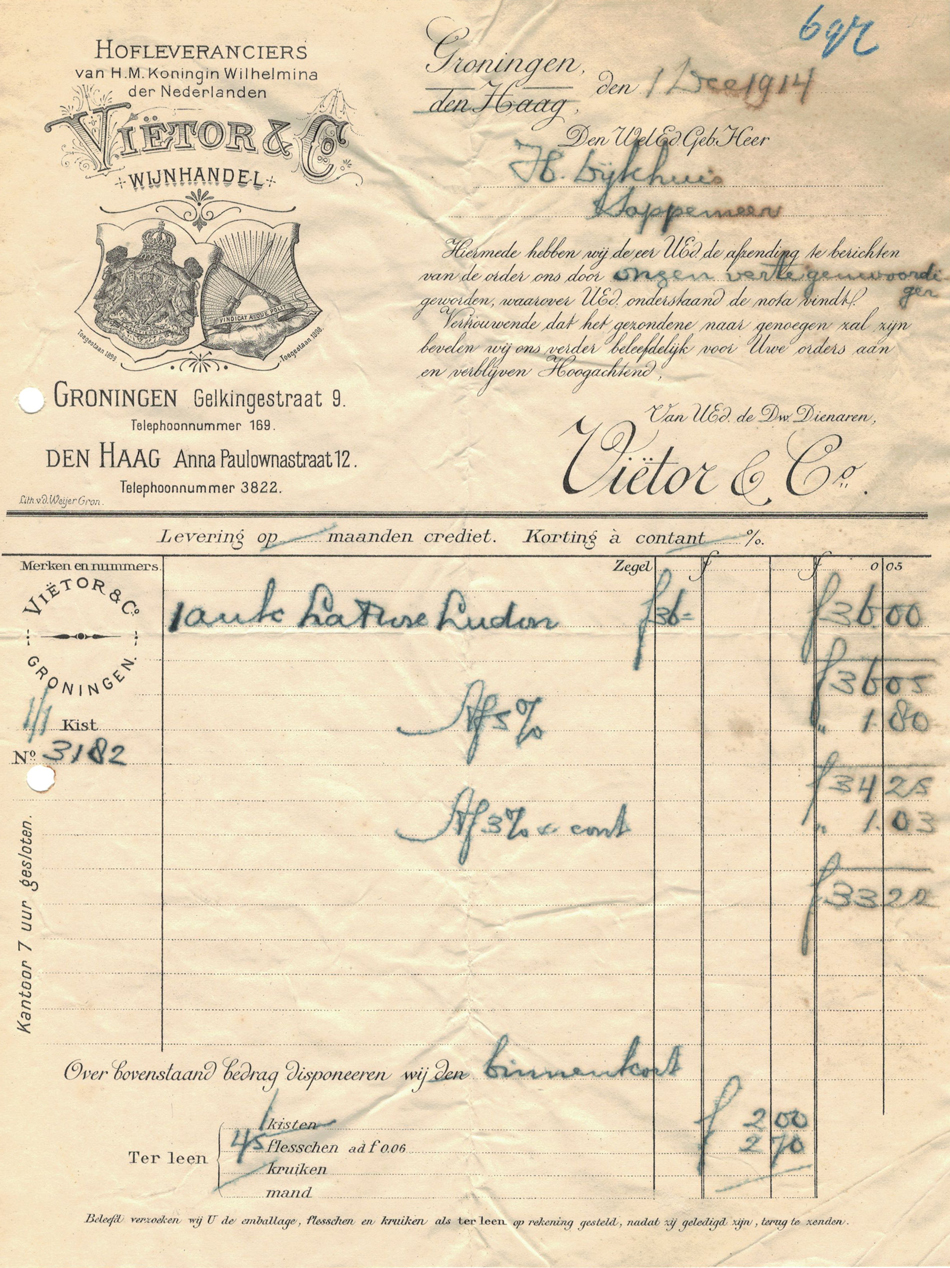 697
HOFLEVERANCIERS
van H.M. Koningin Wilhelmina
der Nederlanden
VIËTOR & Co
WIJNHANDEL
VINDICAT ATQUE POLIT
Toegestaan 1893.
Toegestaan 1898.
GRONINGEN Gelkingestraat 9.
Telephoonnummer 169.
DEN HAAG Anna Paulownastraat 12.
Telephoonnummer 3822.
Lith. v.d. Weijer Gron.
Groningen,
den Haag,
den 1 Dec 1914
Den WelEdGebHeer
H. Dijkhuis
Sappemeer
Hiermede hebben wij de eer UEd. de afzending te berichten
van de order ons door onzen vertegenwoordi
ger
geworden, waarover UEd. onderstaand de nota vindt.
Vertrouwende dat het gezondene naar genoegen zal zijn
bevelen wij ons verder beleefdelijk voor Uwe orders aan
en verblijven Hoogachtend,
Van UEd. de Dw. Dienaren,
Viëtor & Co.
Levering op maanden crediet. Korting à contant %.
Merken en nummers. Zegel f f 0 05
VIËTOR & Co.
GRONINGEN.
1 ank Ludon f 36= f 36.00
f 36 05
1/1 Kist Af 5% " 1.80
No 3182
f 34 25
Af 3% x cont " 1.03
f 33 22
Kantoor 7 uur gesloten.
Over bovenstaand bedrag disponeeren wij den binnenkort
Ter leen
1 kisten f 2 00
45 flesschen ad f 0.06 2 70
kruiken
mand
Beleefd verzoeken wij U de emballage, flesschen en kruiken als ter leen op rekening gesteld, nadat zij geledigd zijn, terug te zenden.